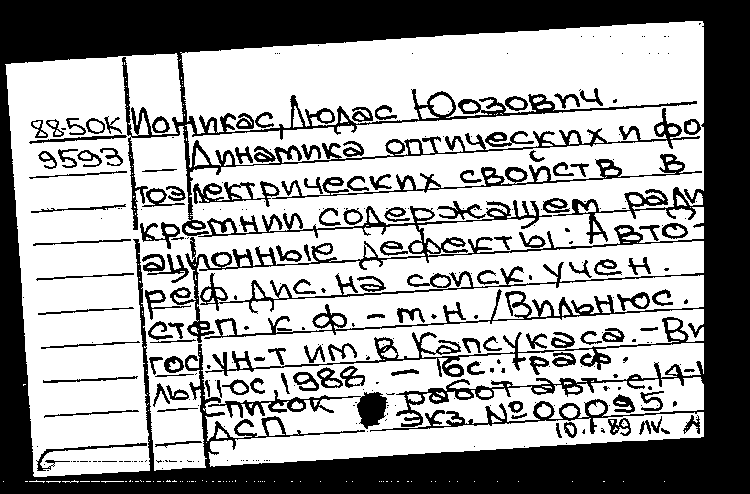 88-50К Ионикас, Людас Юозович.
9593 Динамика оптических и фо-
тоэлектрических свойств в
кремнии, содержащем ради
ационные дефекты: Авто-
реф. дис. на соиск. учен.
степ. к. ф. - м. н. / Вильнюс.
гос. ун-т им. В. Капсукаса. - Ви
льнюс, 1988. - 16 с.: граф.
Список работ авт.: с. 14-1
ДСП. Экз. № 00095.
10.1.89